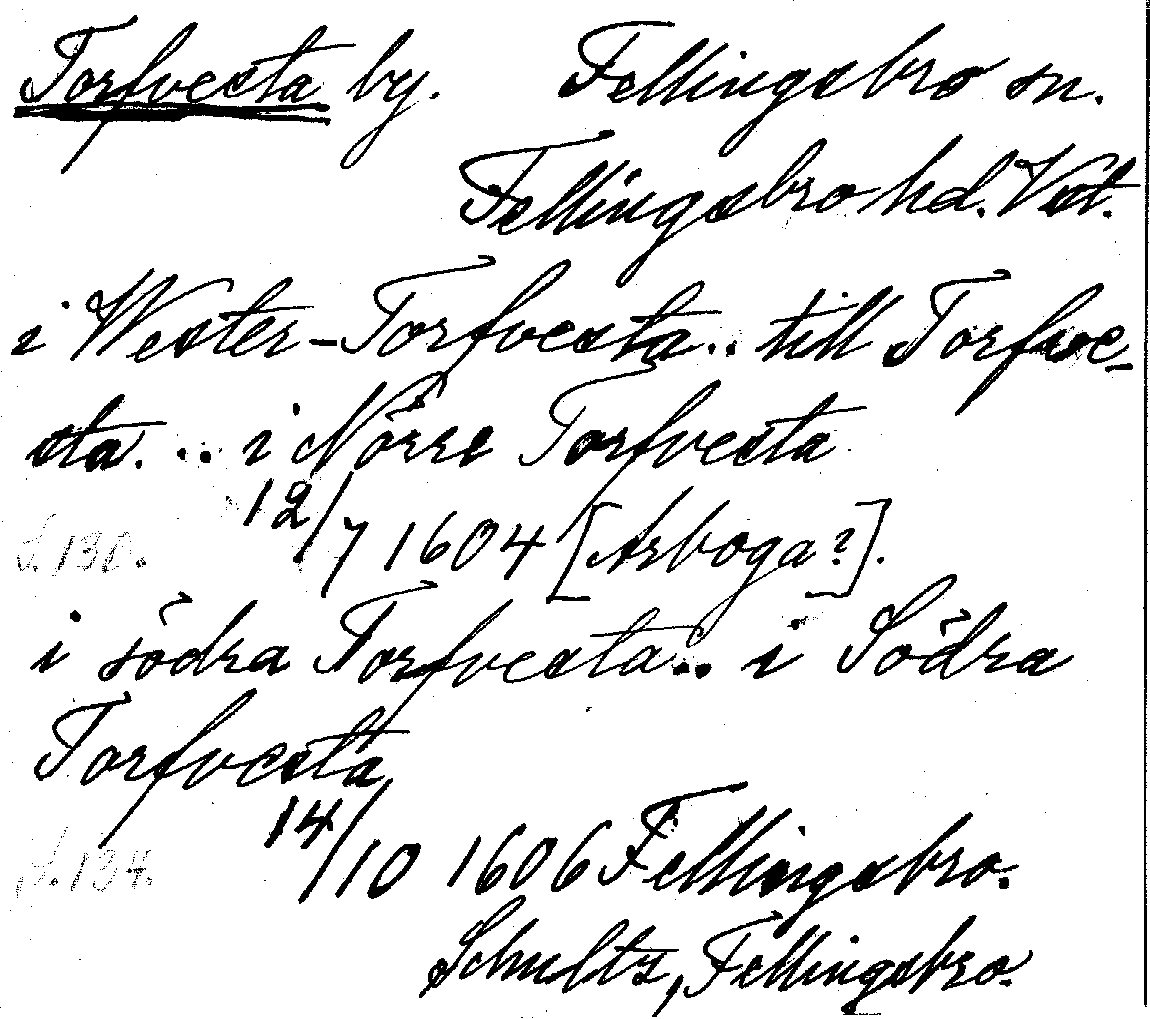 Torfvesta by. Fellingsbro sn.
Fellingsbro hd. Vst.
i Wester-Torfvesta .. till Torfve-
sta. .. i Nörre Torfvesta
S. 130. 12/7 1604 [Arboga?].
i södra Torfvesta .. i Södra
Torfvesta
S. 134. 14/10 1606 Fellingsbro.
Schultz, Fellingsbro.